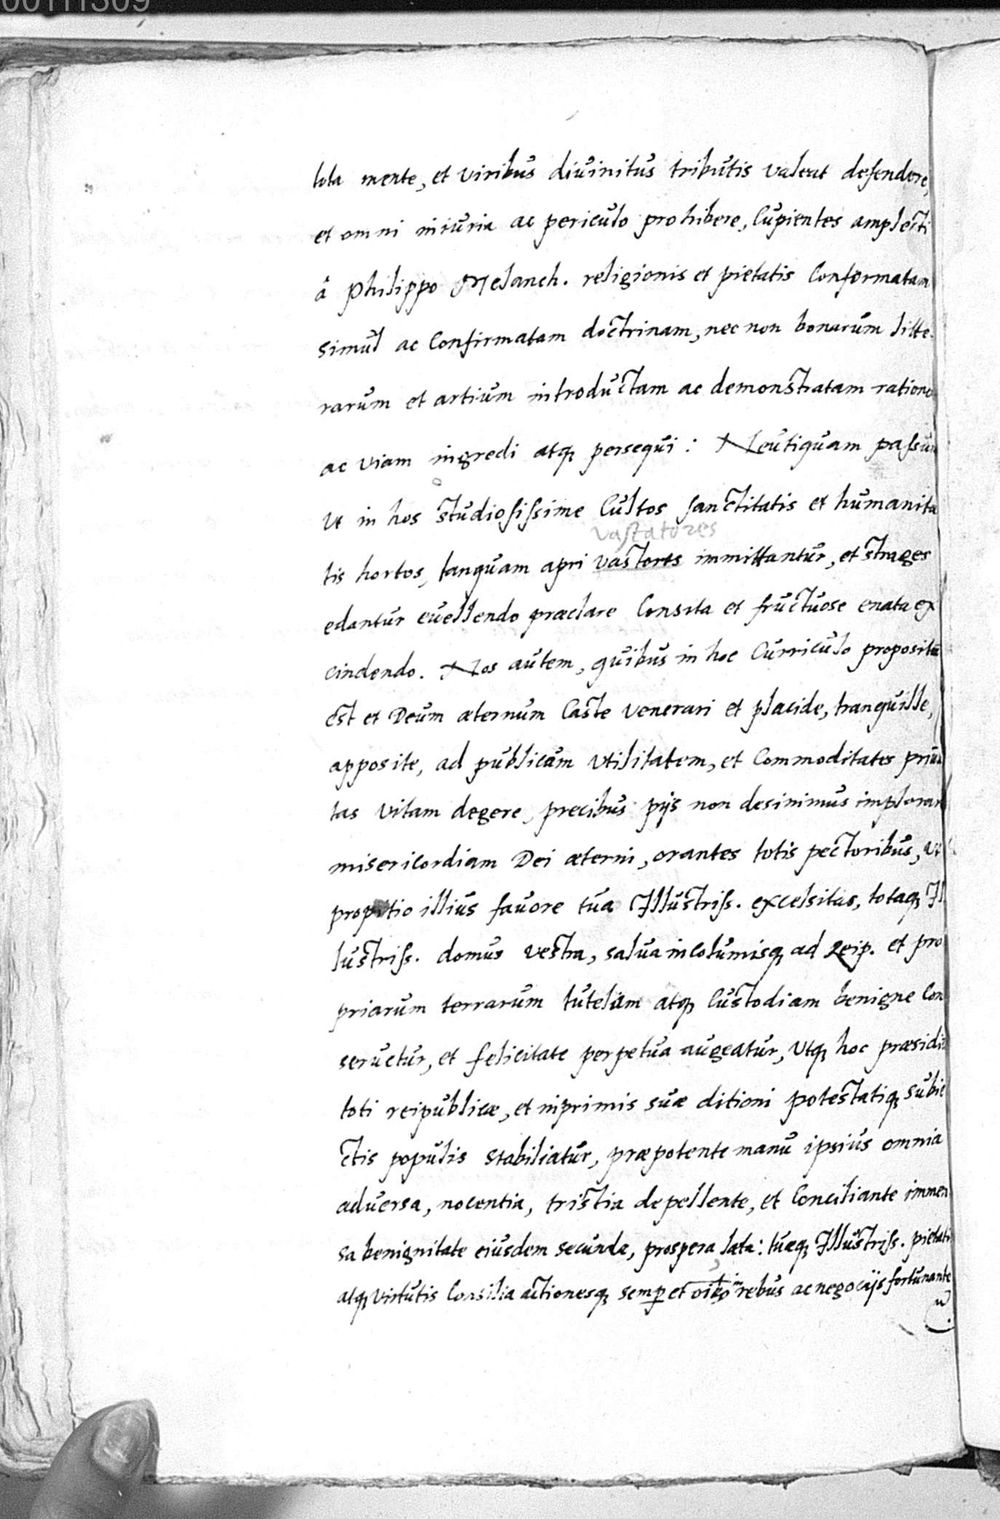 00111309
tota mente, et viribus divinitus tributis valeat defendere,
et omni iniuria ac periculo prohibere, Cupientes amplecti
â Philippo Melanch. religionis et pietatis Conformatam
simul ac Confirmatam doctrinam, nec non bonarum litte-
rarum et artium introductam ac demonstratam ratione
ac viam ingredi atq persequi: Neutiquam passur
ut in hos studiosissime Cultos sanctitatis et humanita
vastatores
tis hortos, tanquam apri vastores immittantur, et strages
edantur evellendo præclare Consita et fructuose enata ex
cindendo. Nos autem, quibus in hoc Curriculo propositū
est et Deum æternum Caste venerari et placide, tranquille,
apposite, ad publicam utilitatem, et Commoditates priua
tas vitam degere, precibus pijs non desinimus implorar
misericordiam Dei æterni, orantes totis pectoribus, ut
propitio illius favore tua Illustriss. excelsitas, totaq Il
lustriss. domus vestra, salva incolumisq ad Reip. et pro
priarum terrarum tutelam atq Custodiam benigne Con
servetur, et felicitate perpetua augeatur, Utq hoc præsidio
toti reipublicæ, et inprimis suæ ditioni potestatiq subie
ctis populis stabiliatur, præpotente manu ipsius omnia
adversa, nocentia, tristia depellente, et Conciliante immen
sa benignitate eiusdem secunda, prospera, læta: tuæq Illustriss. pietati
atq virtutis Consilia actionesq semp et rebus ac negocijs fortunante